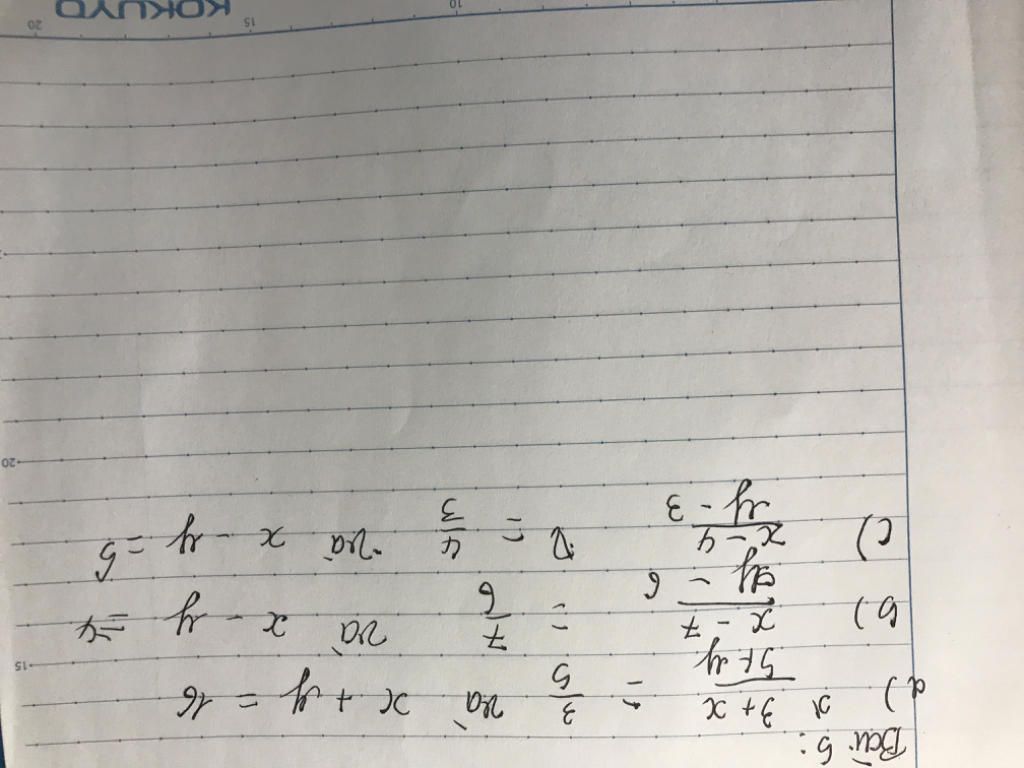 Bài 5:
a) 3+x / 5+y = 3/5 và x + y = 16
b) x - 7 / y - 6 = 7/6 và x - y = -4
c) x - 4 / y - 3 = 4/3 và x - y = 5
15
20
10
15
20
KOKUYO